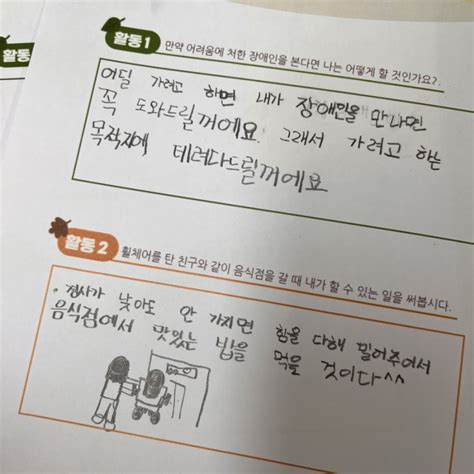 활동
활동 1 만약 어려움에 처한 장애인을 본다면 나는 어떻게 할 것인가요?
어딜 가려고 하면 내가 장애인을 만나면
꼭 도와드릴꺼에요. 그래서 가려고 하는
목적지에 데려다드릴꺼에요
활동 2 휠체어를 탄 친구와 같이 음식점을 갈 때 내가 할 수 있는 일을 써봅시다.
· 경사가 낮아도 안 가지면 힘을 다해 밀어주어서
음식점에서 맛있는 밥을 먹을 것이다^^